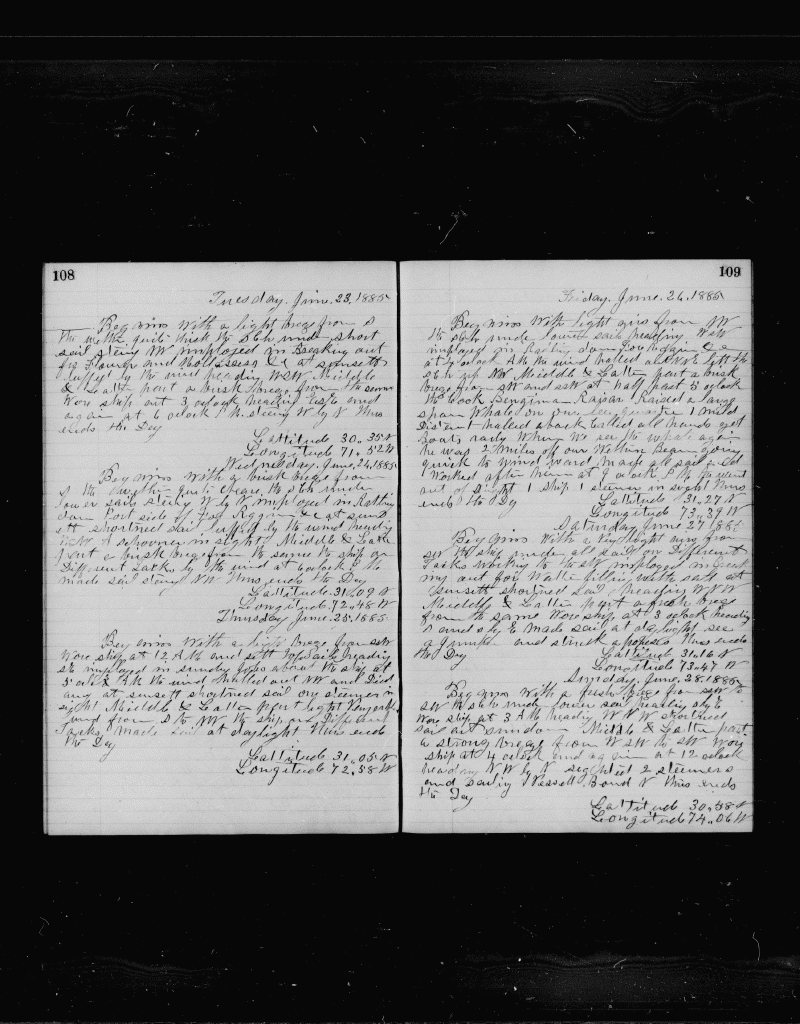 108
Tuesday. June. 23, 1885
Begins With a light breeze from S
the wether quite thick the S under short
sail sterig NW imployed in Breaking out
for Flower and
Luffed by the wind heading WSW Middle
& Latter part a brisk breeze from the same
Wore ship at 3 oclock heading ESE and
again at 6 oclock sterig W by N thus
ends the Day
Lattitude 30.. 35 N
Longitude 71.. 52 W
Wednesday. June, 24, 1885
Begins With a brisk breeze from
S the wether quite the ship under
lower sails sterig N by W imployed in Rattling
down Port side of Fore Riggin & C at sun
sett shortned sail luffed by the wind heading
WSW 1 schooner in sight Middle & Latter
part a brisk breeze from the same the ship on
Different tacks by the wind at 6 oclock
made sail sterig NW thus ends the Day
Lattitude. 31.. 09 N
Longitude. 72.. 48 W
Thursday June. 25, 1885
Begins With a light Breeze from SSW
Wore ship at 12 A M and heading
SE imployed in sundry jobs about the ship at
5 oclock A M the wind hauled out NW and Died
away at sunsett shortned sail one steamer in
sight Middle & Latter part light
wind from S to NW the ship on Different
Tacks made sail at daylight thus ends
the Day
Lattitude 31.. 05 N
Longitude 72.. 58 W
109
Friday. June. 26, 1885
Begins With light airs from NW
the ship under lower sails heading WSW
imployed in
at 4 oclock A M the wind halled
Middle & Latter part a brisk
breeze from SW and SSW at half past 5 oclock
the Raised a large
sparm Whale on our lee quarter 1 mild
Distant halled aback Called all hands got
Boats redy When We see the whale again
he was 2 miles off our Wether Beam going
quick to wind ward made all sail
Worked after him at 9 oclock A M he went
out of Sight 1 ship 1 steamer in sight thus
ends the Day
Lattitude 31.. 27 N
Longitude 73.. 39 W
Saturday June 27 1885
Begins With a Very light airs from
SW the ship under all sail on Different
Tacks working to the SW imployed in break
ing out for Water filling with salt at
sunsett shortned sail heading WNW
Middle & Latter part a fresh breeze
from the same Wore ship at 3 oclock heading
S and S by E made sail at daylight see
a and struck thus ends
the Day
Lattitude 31.. 16 N
Longitude 73.. 47 W
Sunday. June. 28, 1885
Begins With a fresh breeze from SSW to
SW the ship under lower sail heading S by E
Wore ship at 3 A M heading W N W shortned
sail at sundown Middle & Latter part
a strong breeze from WSW to SW Wore
ship at 4 oclock and again at 12 oclock
heading N W by N sighted 2 steamers
and sailing Vessell Bound N thus ends
the Day
Lattitude 30.. 58 N
Longitude 74.. 06 W